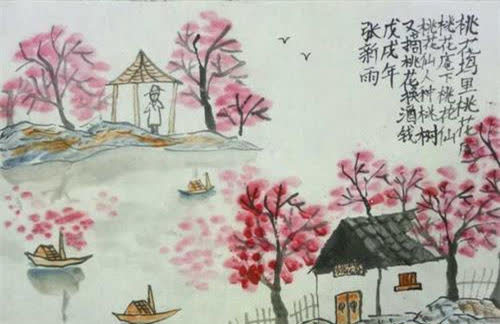 桃花坞里桃花庵
桃花庵下桃花仙
桃花仙人种桃树
又摘桃花换酒钱
戊戌年
张新雨